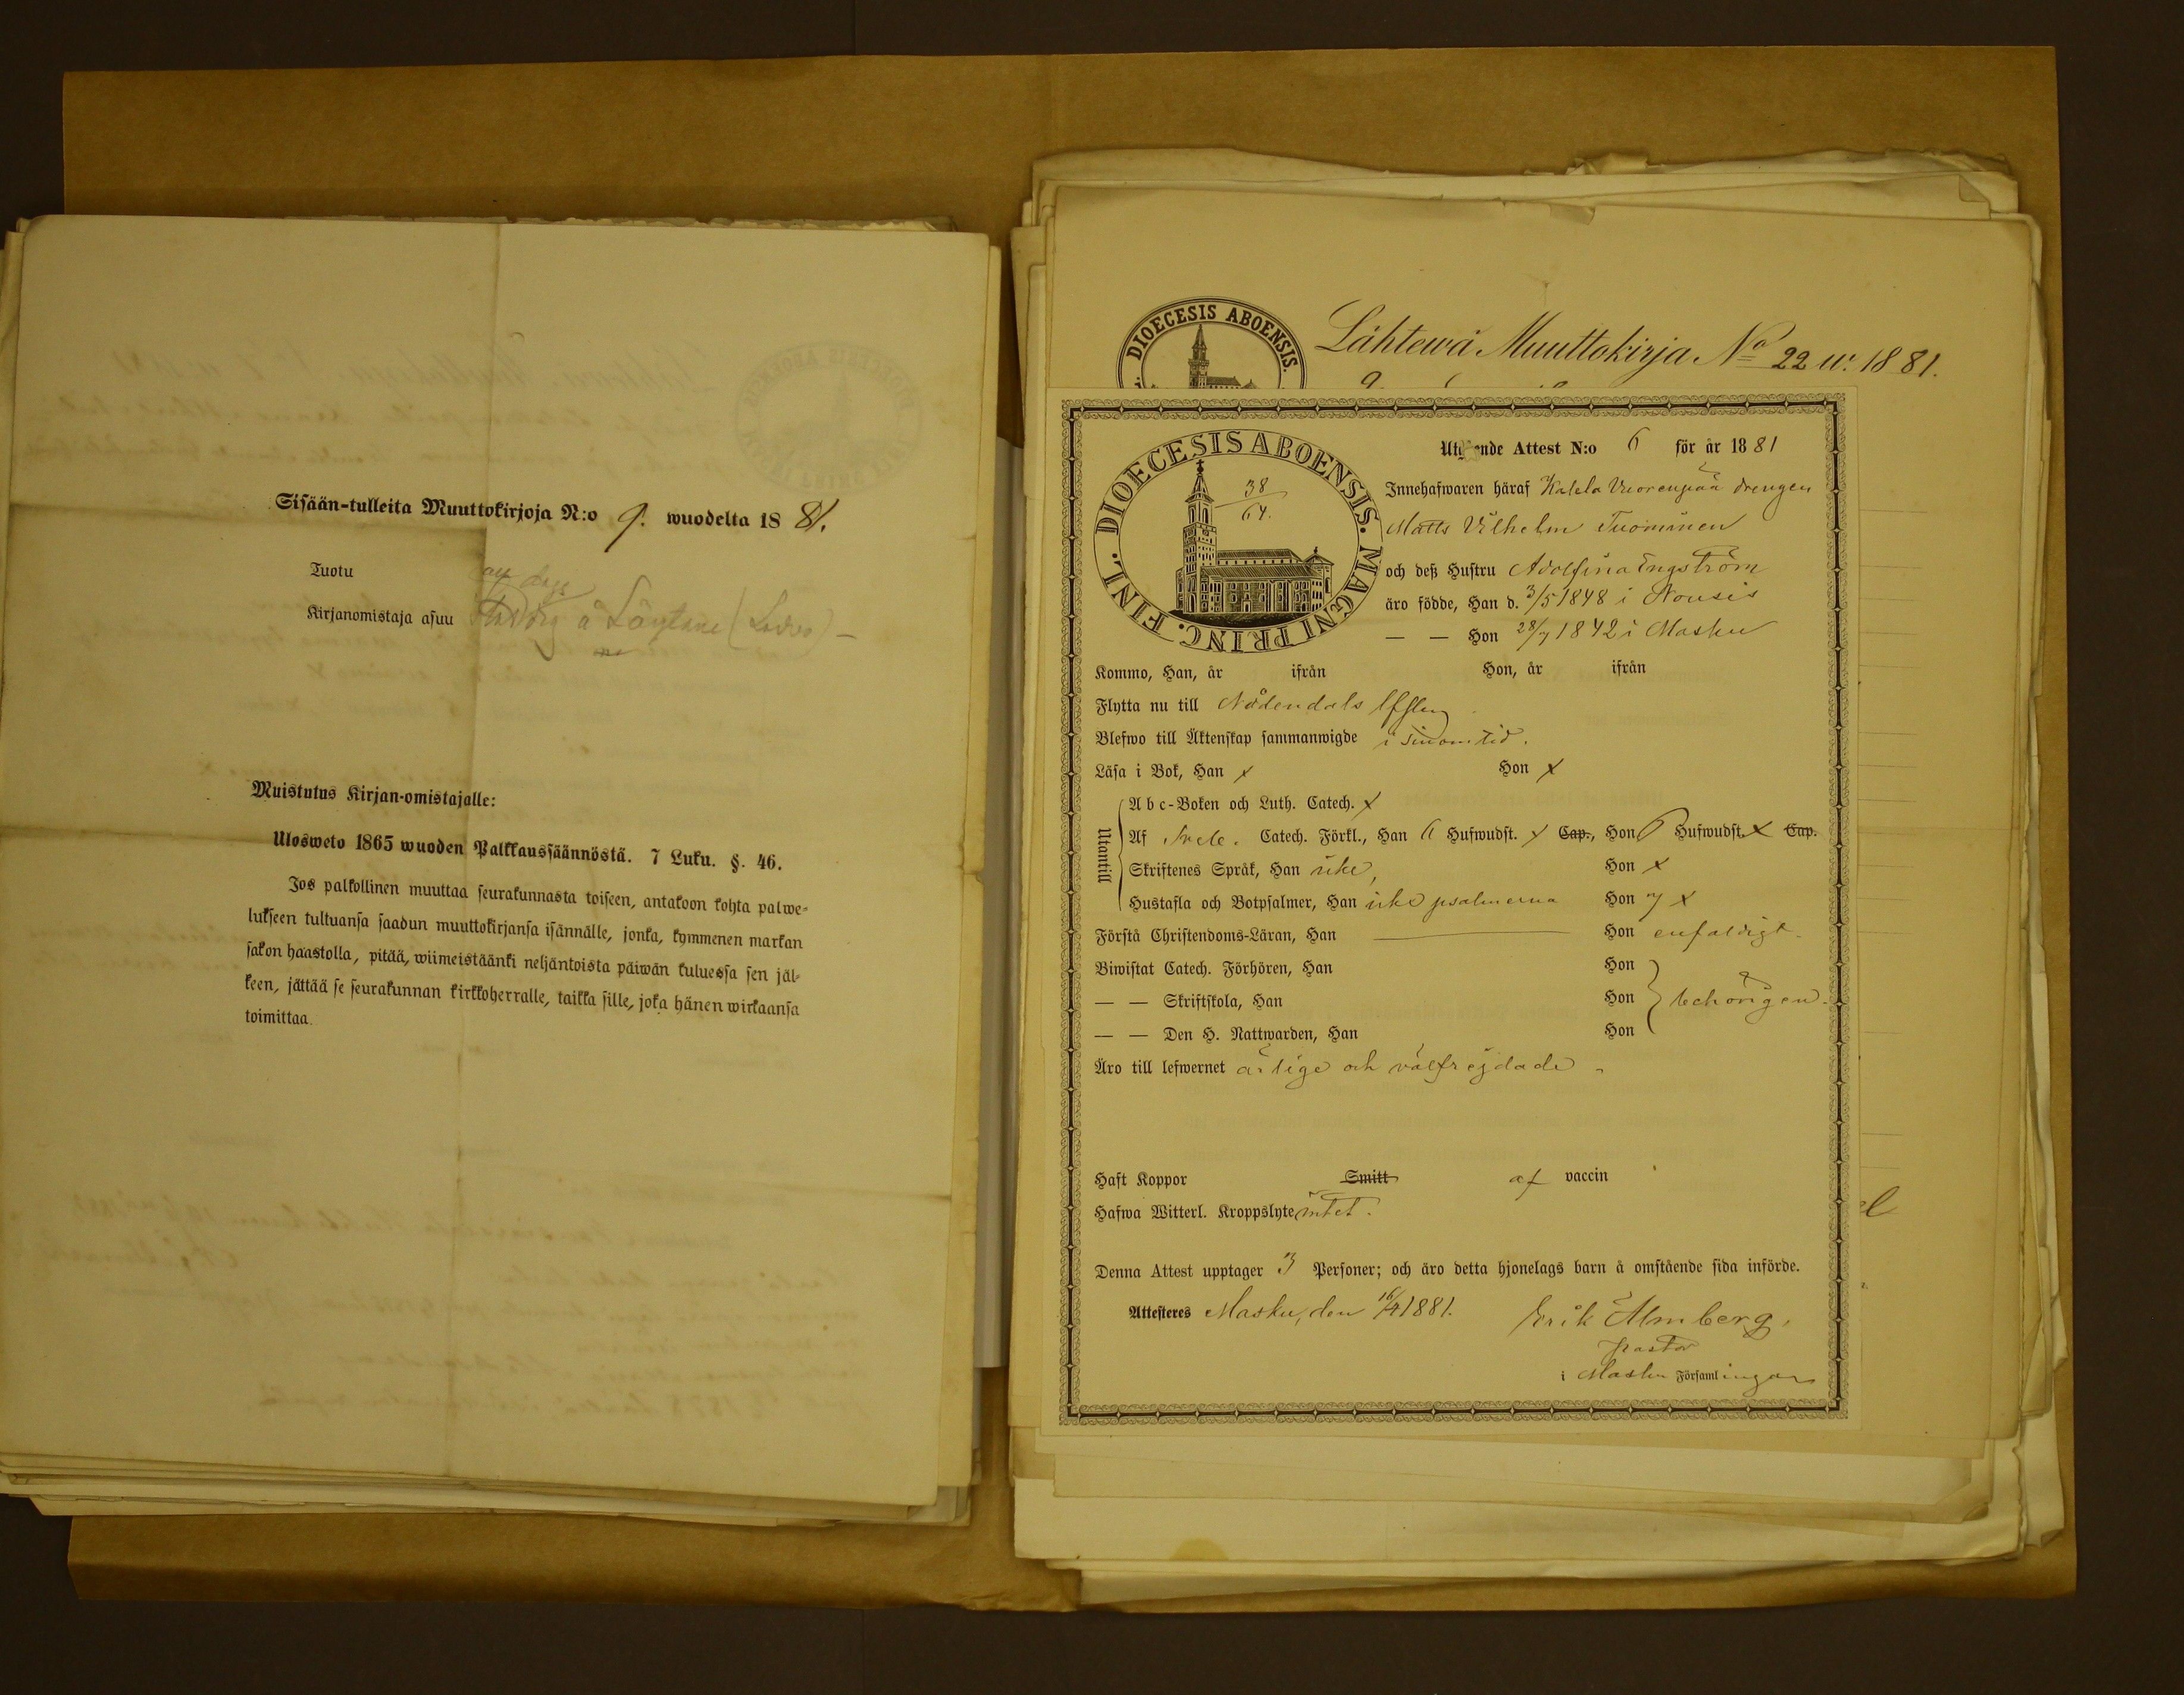 Sisään-tulleita Muuttokirjoja N:o 9. wuodelta 18 81.
Tuotu
Kirjanomistaja asuu å
Muistutus Kirjan-omistajalle:
Ulosweto 1865 wuoden Palkkaussäännöstä. 7 Luku. §. 46.
Jos palkollinen muuttaa seurakunnasta toiseen, antakoon kohta palwe-
lukseen tultuansa saadun muuttokirjansa isännälle, jonka, kymmenen markan
sakon haastolla, pitää, wiimeistäänki neljäntoista päiwän kuluessa sen jäl-
keen, jättää se seurakunnan kirkkoherralle, taikka sille, joka hänen wirkaansa
toimittaa.
DIOECESIS ABOENSIS.
Lähtewä Muuttokirja No 22 w. 1881.
DIOECESIS ABOENSIS. MAGNI PRINC. FINL.
38
64.
Utg nde Attest N:o 6 för år 18 81
Innehafwaren häraf Kalela Vuorenpää drengen
Matts Vilhelm Tuominen
och deß Hustru Adolfina Engström
äro födde, Han d. 3/5 1848 i Nousis
— — Hon 28/7 1842 i Masku
Kommo, Han, år ifrån Hon, år ifrån
Flytta nu till Nådendals
Blefwo till Äktenskap sammanwigde i sinom tid.
Läsa i Bok, Han x Hon x
Utantill
Abc-Boken och Luth. Catech. x
Af Catech. Förkl., Han 6 Hufwudst. x Cap., Hon Hufwudst. x Cap.
Skriftenes Språk, Han icke, Hon x
Hustafla och Botpsalmer, Han icke psalmerna Hon x
Förstå Christendoms-Läran, Han Hon enfaldigt
Biwistat Catech. Förhören, Han Hon
— — Skriftskola, Han Hon behörigen.
— — Den H. Nattwarden, Han Hon
Äro till lefwernet ärlige och välfrejdade
Haft Koppor Smitt af vaccin
Hafwa Witterl. Kroppslyte intet.
Denna Attest upptager 3 Personer; och äro detta hjonelags barn å omstående sida införde.
Attesteres Masku, den 16/4 1881. Erik Almberg,
Pastor
i Masku Församlingar